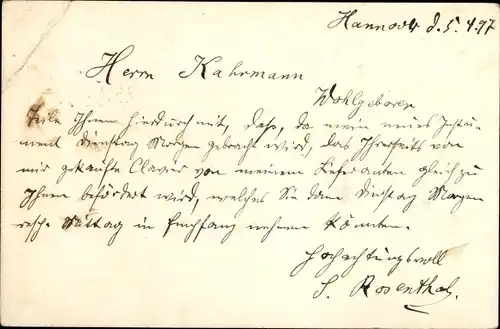 Hannover d. 5. 4. 97
Herrn Kahrmann
Wohlgeboren
Teile Ihnen hierdurch mit, daß, da mein neues Instru-
ment Dienstag Morgen gebracht wird, das Ihrerseits von
mir gekaufte Clavier von meinem Lieferanten gleich zu
Ihnen befördert wird, welches Sie dann Dienstag Morgen
resp. Mittag in Empfang nehmen könnten.
Hochachtungsvoll
S. Rosenthal.